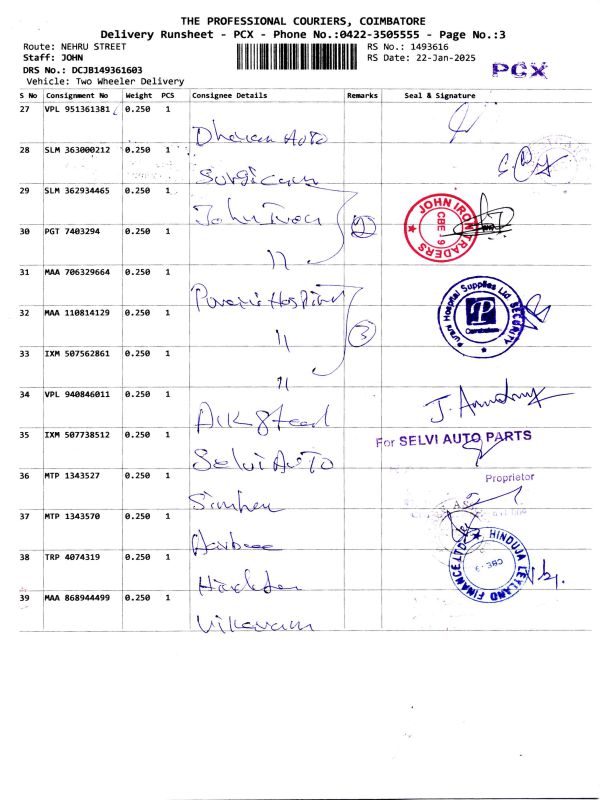 THE PROFESSIONAL COURIERS, COIMBATORE
Delivery Runsheet - PCX - Phone No.:0422-3505555 - Page No.:3
Route: NEHRU STREET
RS No.: 1493616
Staff: JOHN
RS Date: 22-Jan-2025
DRS No.: DCJB149361603
PCX
Vehicle: Two Wheeler Delivery
S No Consignment No Weight PCS Consignee Details Remarks Seal & Signature
27 VPL 951361381 0.250 1
Auto
28 SLM 363000212 0.250 1
29 SLM 362934465 0.250 1
John
JOHN IRON TRADERS
CBE - 9
30 PGT 7403294 0.250 1
11
31 MAA 706329664 0.250 1
Hospital
Purani Hospital Supplies Ltd
SECURITY
P
Coimbatore
32 MAA 110814129 0.250 1
11
3
33 IXM 507562861 0.250 1
11
34 VPL 940846011 0.250 1
Steel
35 IXM 507738512 0.250 1
Selvi Auto
For SELVI AUTO PARTS
Proprietor
36 MTP 1343527 0.250 1
37 MTP 1343570 0.250 1
38 TRP 4074319 0.250 1
HINDUJA LEYLAND FINANCE LTD
CBE - 9
39 MAA 868944499 0.250 1